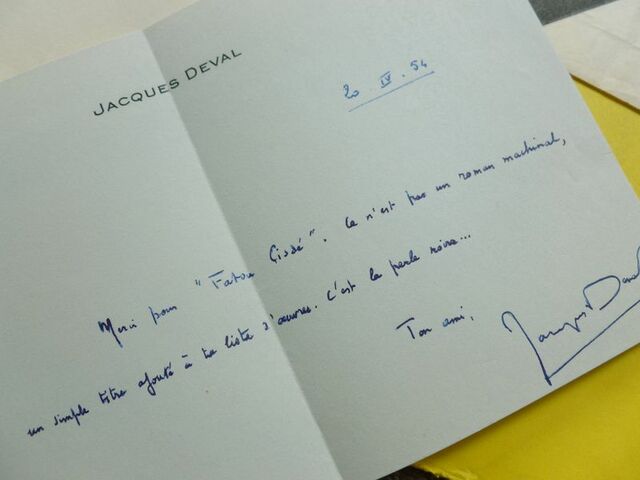 JACQUES DEVAL
20. IV. 54
Merci pour "Fatou Cissé". Ce n'est pas un roman machinal,
un simple titre ajouté à ta liste d'œuvres. C'est la perle noire...
Ton ami,
Jacques Deval